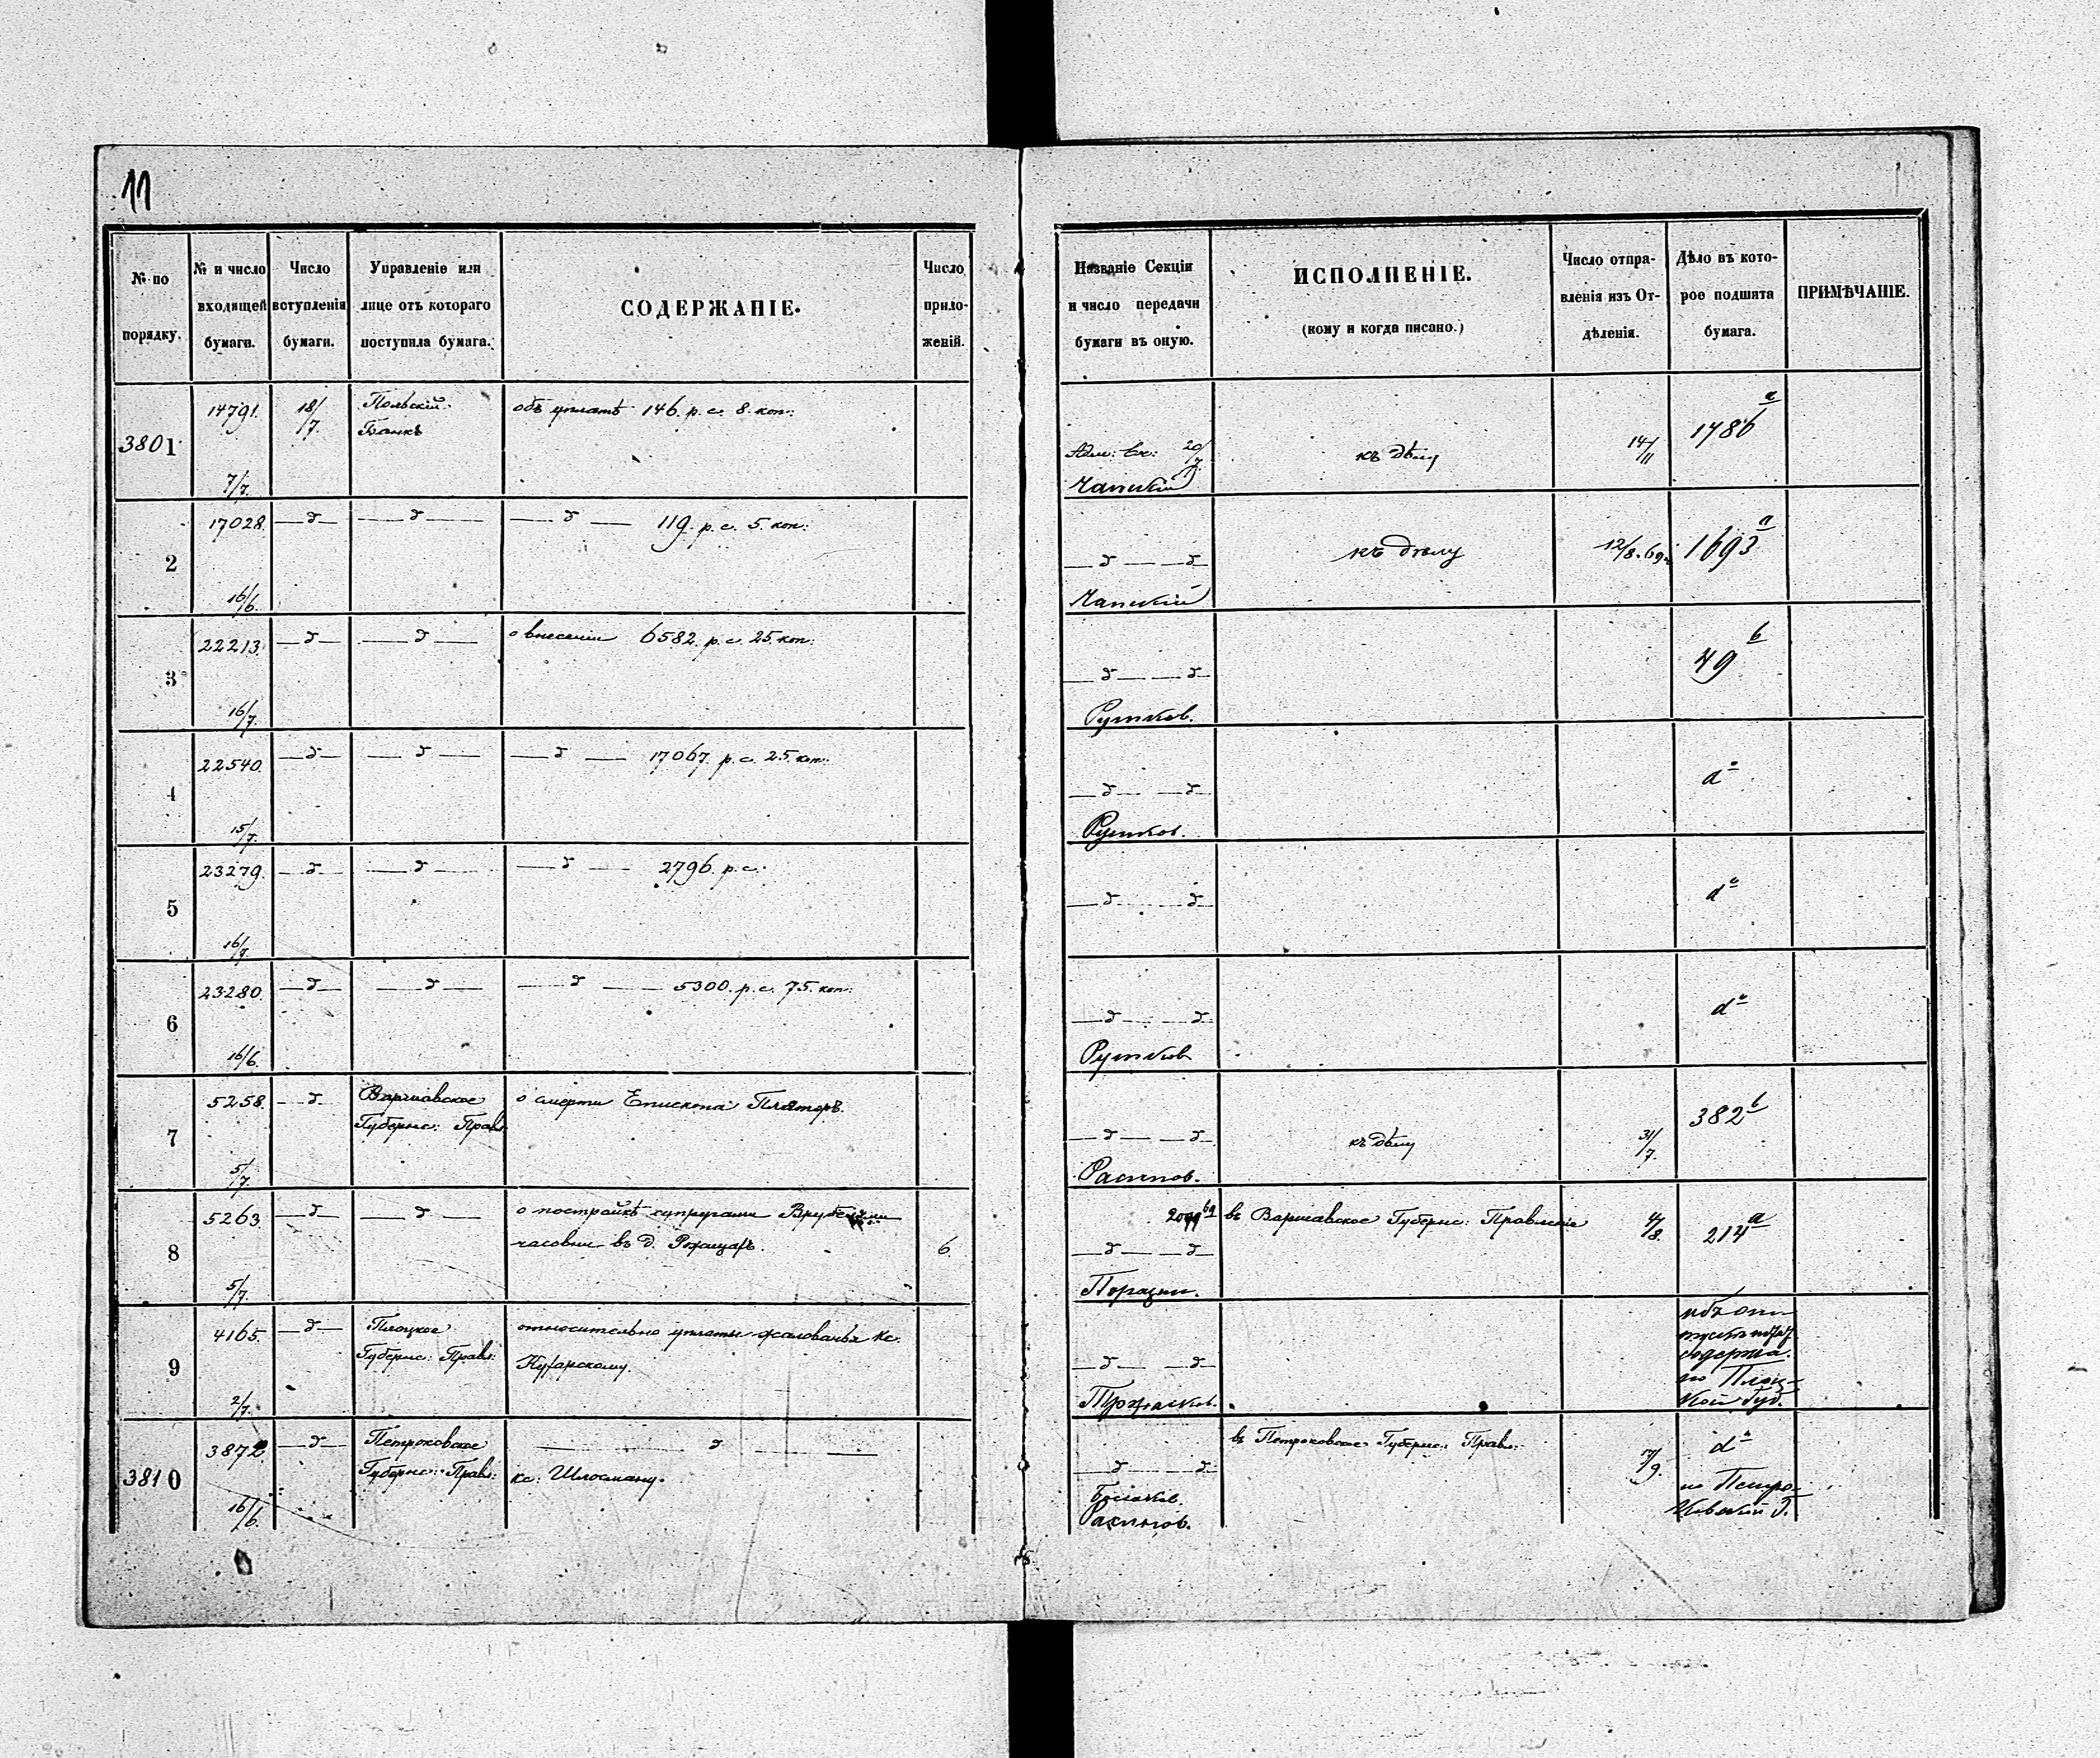 11
№ по порядку.
№ и число входящей бумаги.
Число вступленія бумаги.
Управленіе или лице отъ котораго поступила бумага.
СОДЕРЖАНІЕ.
Число приложеній.
Названіе Секціи и число передачи бумаги въ оную.
ИСПОЛНЕНІЕ.
(кому и когда писано.)
Число отправленія изъ Отдѣленія.
Дѣло въ которое подшита бумага.
ПРИМѢЧАНІЕ.
3801
14791.
7/7.
18/7.
Польскій Банкъ
объ уплатѣ 146. р. с. 8. коп:
Адм: Ск: 20/7.
Чапскій
къ дѣлу
14/11
1786 a
2
17028.
16/6.
—д— —д— —д— 119. р. с. 5. коп:
—д— —д—
Чапскій
къ дѣлу
12/8. 69
1693 a
3
22213.
16/7.
—д— —д— о внесеніи 6582. р. с. 25. коп:
—д— —д—
Рутков.
49 b
4
22540.
15/7.
—д— —д— —д— 17067. р. с. 25. коп:
—д— —д—
Рутков.
dº
5
23279.
16/7.
—д— —д— —д— 2796. р. с.
—д— —д—
dº
6
23280.
16/6.
—д— —д— —д— 5300. р. с. 75. коп:
—д— —д—
Рутков
dº
7
5258.
5/7.
—д—
Варшавское Губернс: Правл
о смерти Епископа Плятеръ.
—д— —д—
къ дѣлу
31/7.
382 b
8
5263.
5/7.
—д— —д—
о постройкѣ супругами
часовни въ д.
6.
—д— —д—
въ Варшавское Губернс: Правленіе
4/8.
214 a
9
4165.
2/7.
—д—
Плоцкое Губернс: Правл:
относительно уплаты жалованья кс.
—д— —д—
содержа.
по Плоц-
кой Губ.
3810
3872
16/6.
—д—
Петроковское Губернс: Правл:
—д—
кс: Шлосману.
—д— —д—
въ Петроковское Губернс: Правл:
dº
по Петро-
ковской Г.